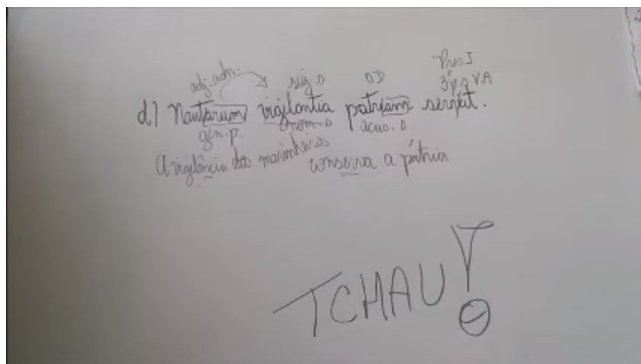 adj. adn. suj. s OD Pres I
3ª p s VA
d) Nautarum vigilantia patriam servat.
gen. p. nom. s acus. s
A vigilância dos marinheiros conserva a pátria
TCHAU!